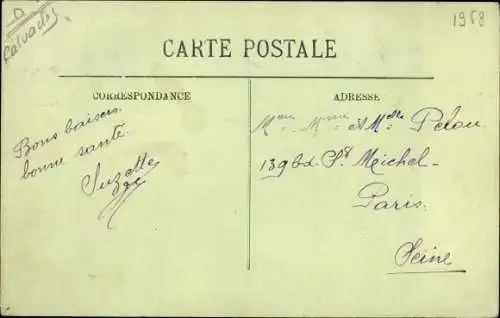 D
Calvados
1958
CARTE POSTALE
CORRESPONDANCE
ADRESSE
Bons baisers.
bonne santé.
Suzette
Mme & Melle Pelou
139 bd. St Meichel
Paris.
Seine